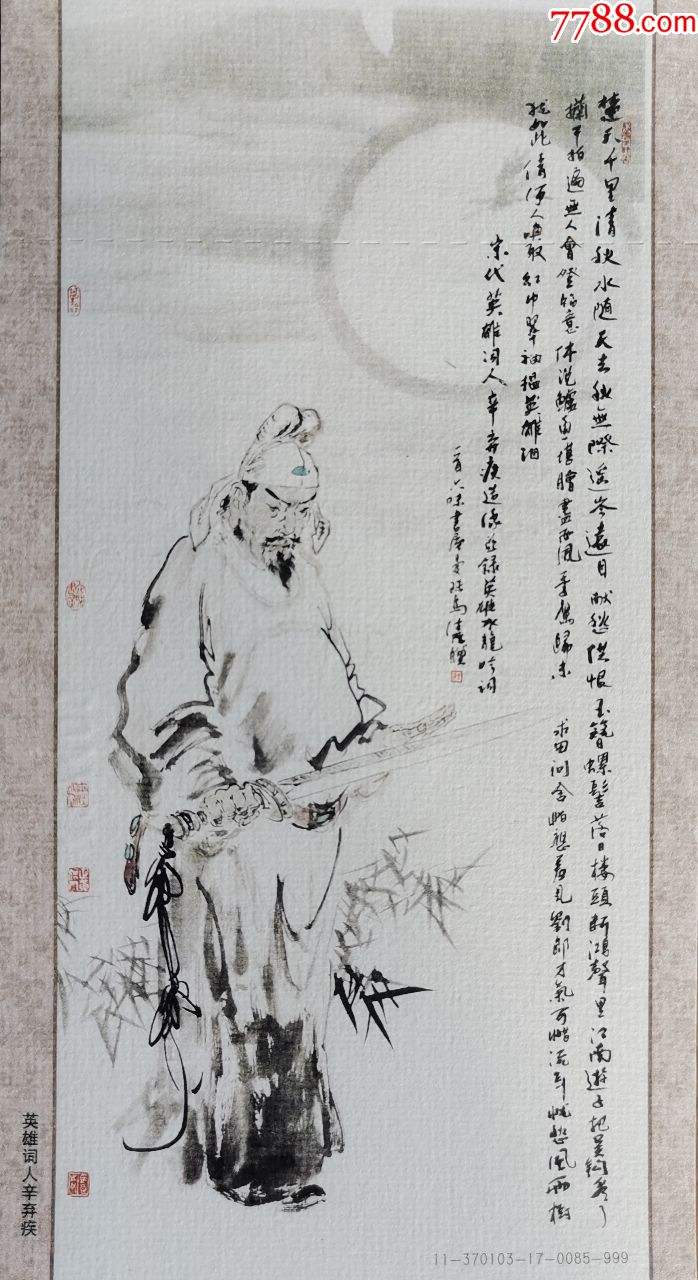 7788.com
楚天千里清秋水随天去秋無際遥岑遠目献愁供恨玉簪螺髻落日楼頭断鴻聲里江南遊子把吴鈎看了
欄干拍遍無人會登臨意休说鱸鱼堪膾盡西風季鷹歸未 求田问舍怕應羞見劉郎才氣可惜流年忧愁風雨樹
犹如此倩何人唤取红巾翠袖揾英雄泪
宋代英雄词人辛弃疾造像並錄英雄水龍吟词
英雄词人辛弃疾
11-370103-17-0085-999